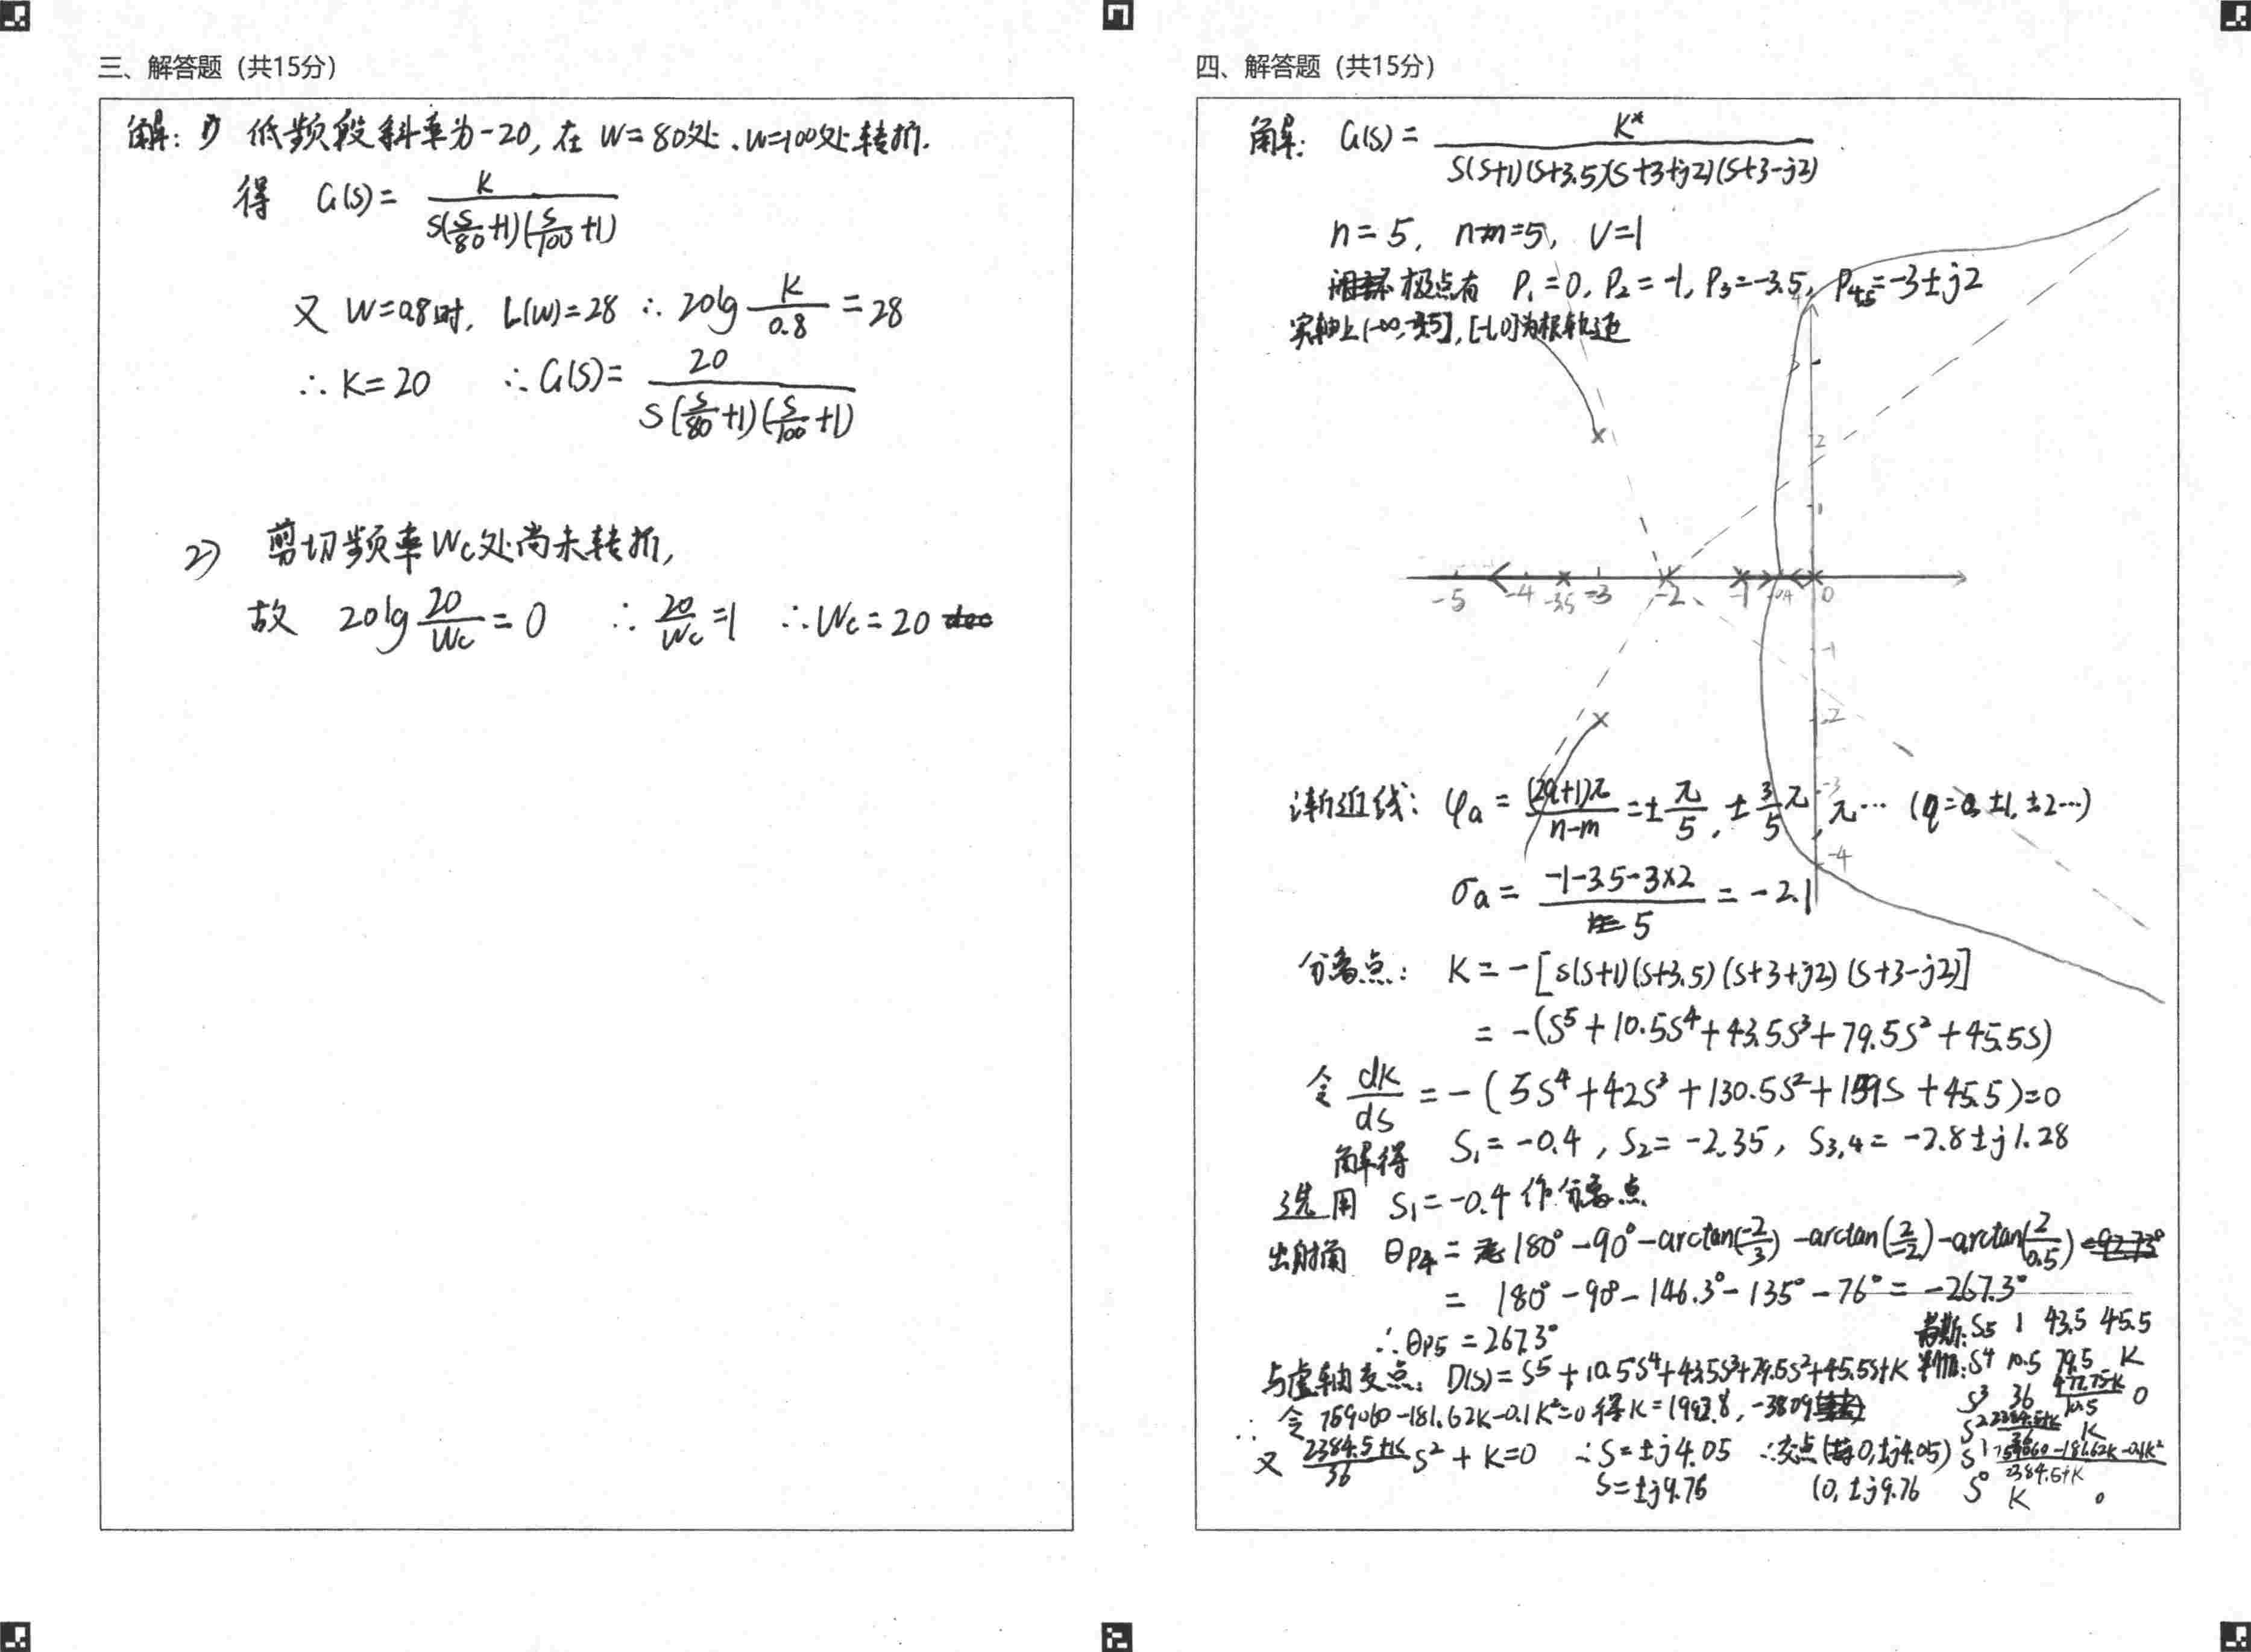 三、解答题（共15分）
解: 1) 低频段斜率为-20, 在 W=80处、W=100处转折.
得 G(S)= K / S(S/80+1)(S/100+1)
又 W=0.8时, L(W)=28 ∴ 20lg K/0.8 =28
∴ K=20 ∴ G(S)= 20 / S(S/80+1)(S/100+1)
2) 剪切频率Wc处尚未转折,
故 20lg 20/Wc = 0 ∴ 20/Wc =1 ∴ Wc=20
四、解答题（共15分）
解: G(S)= K* / S(S+1)(S+3.5)(S+3+j2)(S+3-j2)
n=5, n-m=5, V=1
极点有 P₁=0, P₂=-1, P₃=-3.5, P₄,₅=-3±j2
实轴上(-∞,-3.5], [-1,0]为根轨迹
4
3
2
1
-5 -4 -3.5 -3 -2 -1 -0.4 0
-1
-2
-3
-4
渐近线: φa = (2q+1)π / n-m = ± π/5, ± 3/5 π, π… (q=0, ±1, ±2…)
σa = -1-3.5-3×2 / 5 = -2.1
分离点: K = -[S(S+1)(S+3.5)(S+3+j2)(S+3-j2)]
= -(S⁵+10.5S⁴+43.5S³+79.5S²+45.5S)
令 dK/dS = -(5S⁴+42S³+130.5S²+159S+45.5)=0
解得 S₁=-0.4, S₂=-2.35, S₃,₄=-2.8±j1.28
选用 S₁=-0.4 作分离点
出射角 θP4 = 180°-90°-arctan(-2/3)-arctan(2/-2)-arctan(2/0.5)
= 180°-90°-146.3°-135°-76° = -267.3°
∴ θP5=267.3°
与虚轴交点: D(S)=S⁵+10.5S⁴+43.5S³+79.5S²+45.5S+K
∴ 令 759060-181.62K-0.1K²=0 得K=1992.8, -3809
又 2384.5+K / 36 S²+K=0 ∴ S=±j4.05 ∴ 交点(0,±j4.05)
S=±j9.76 (0,±j9.76
劳斯: S5 1 43.5 45.5
判据: S⁴ 10.5 79.5 K
S³ 36 477.75-K / 10.5 0
S² 2384.5+K / 36 K
S¹ 759060-181.62K-0.1K² / 2384.5+K
S⁰ K 0